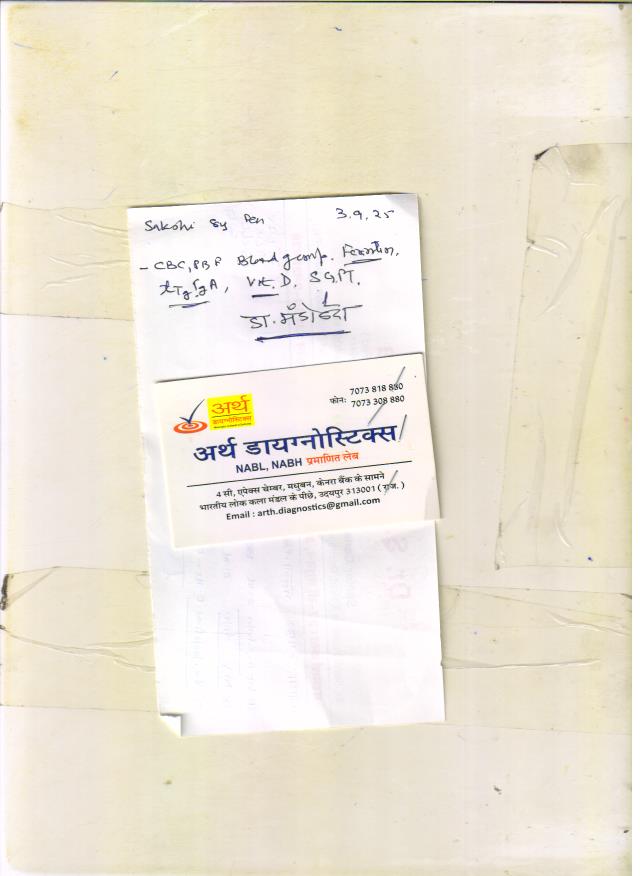 Sakshi 8y 3.9.25
- CBC, PBF Blood group. Ferritin,
tTg IgA, Vit. D. SGPT.
डा.
अर्थ
डायग्नोस्टिक्स
7073 818 880
फोन: 7073 308 880
अर्थ डायग्नोस्टिक्स
NABL, NABH प्रमाणित लेब
4 सी, एपेक्स चेम्बर, मधुबन, केनरा बैंक के सामने
भारतीय लोक कला मंडल के पीछे, उदयपुर 313001 ( राज. )
Email : arth.diagnostics@gmail.com